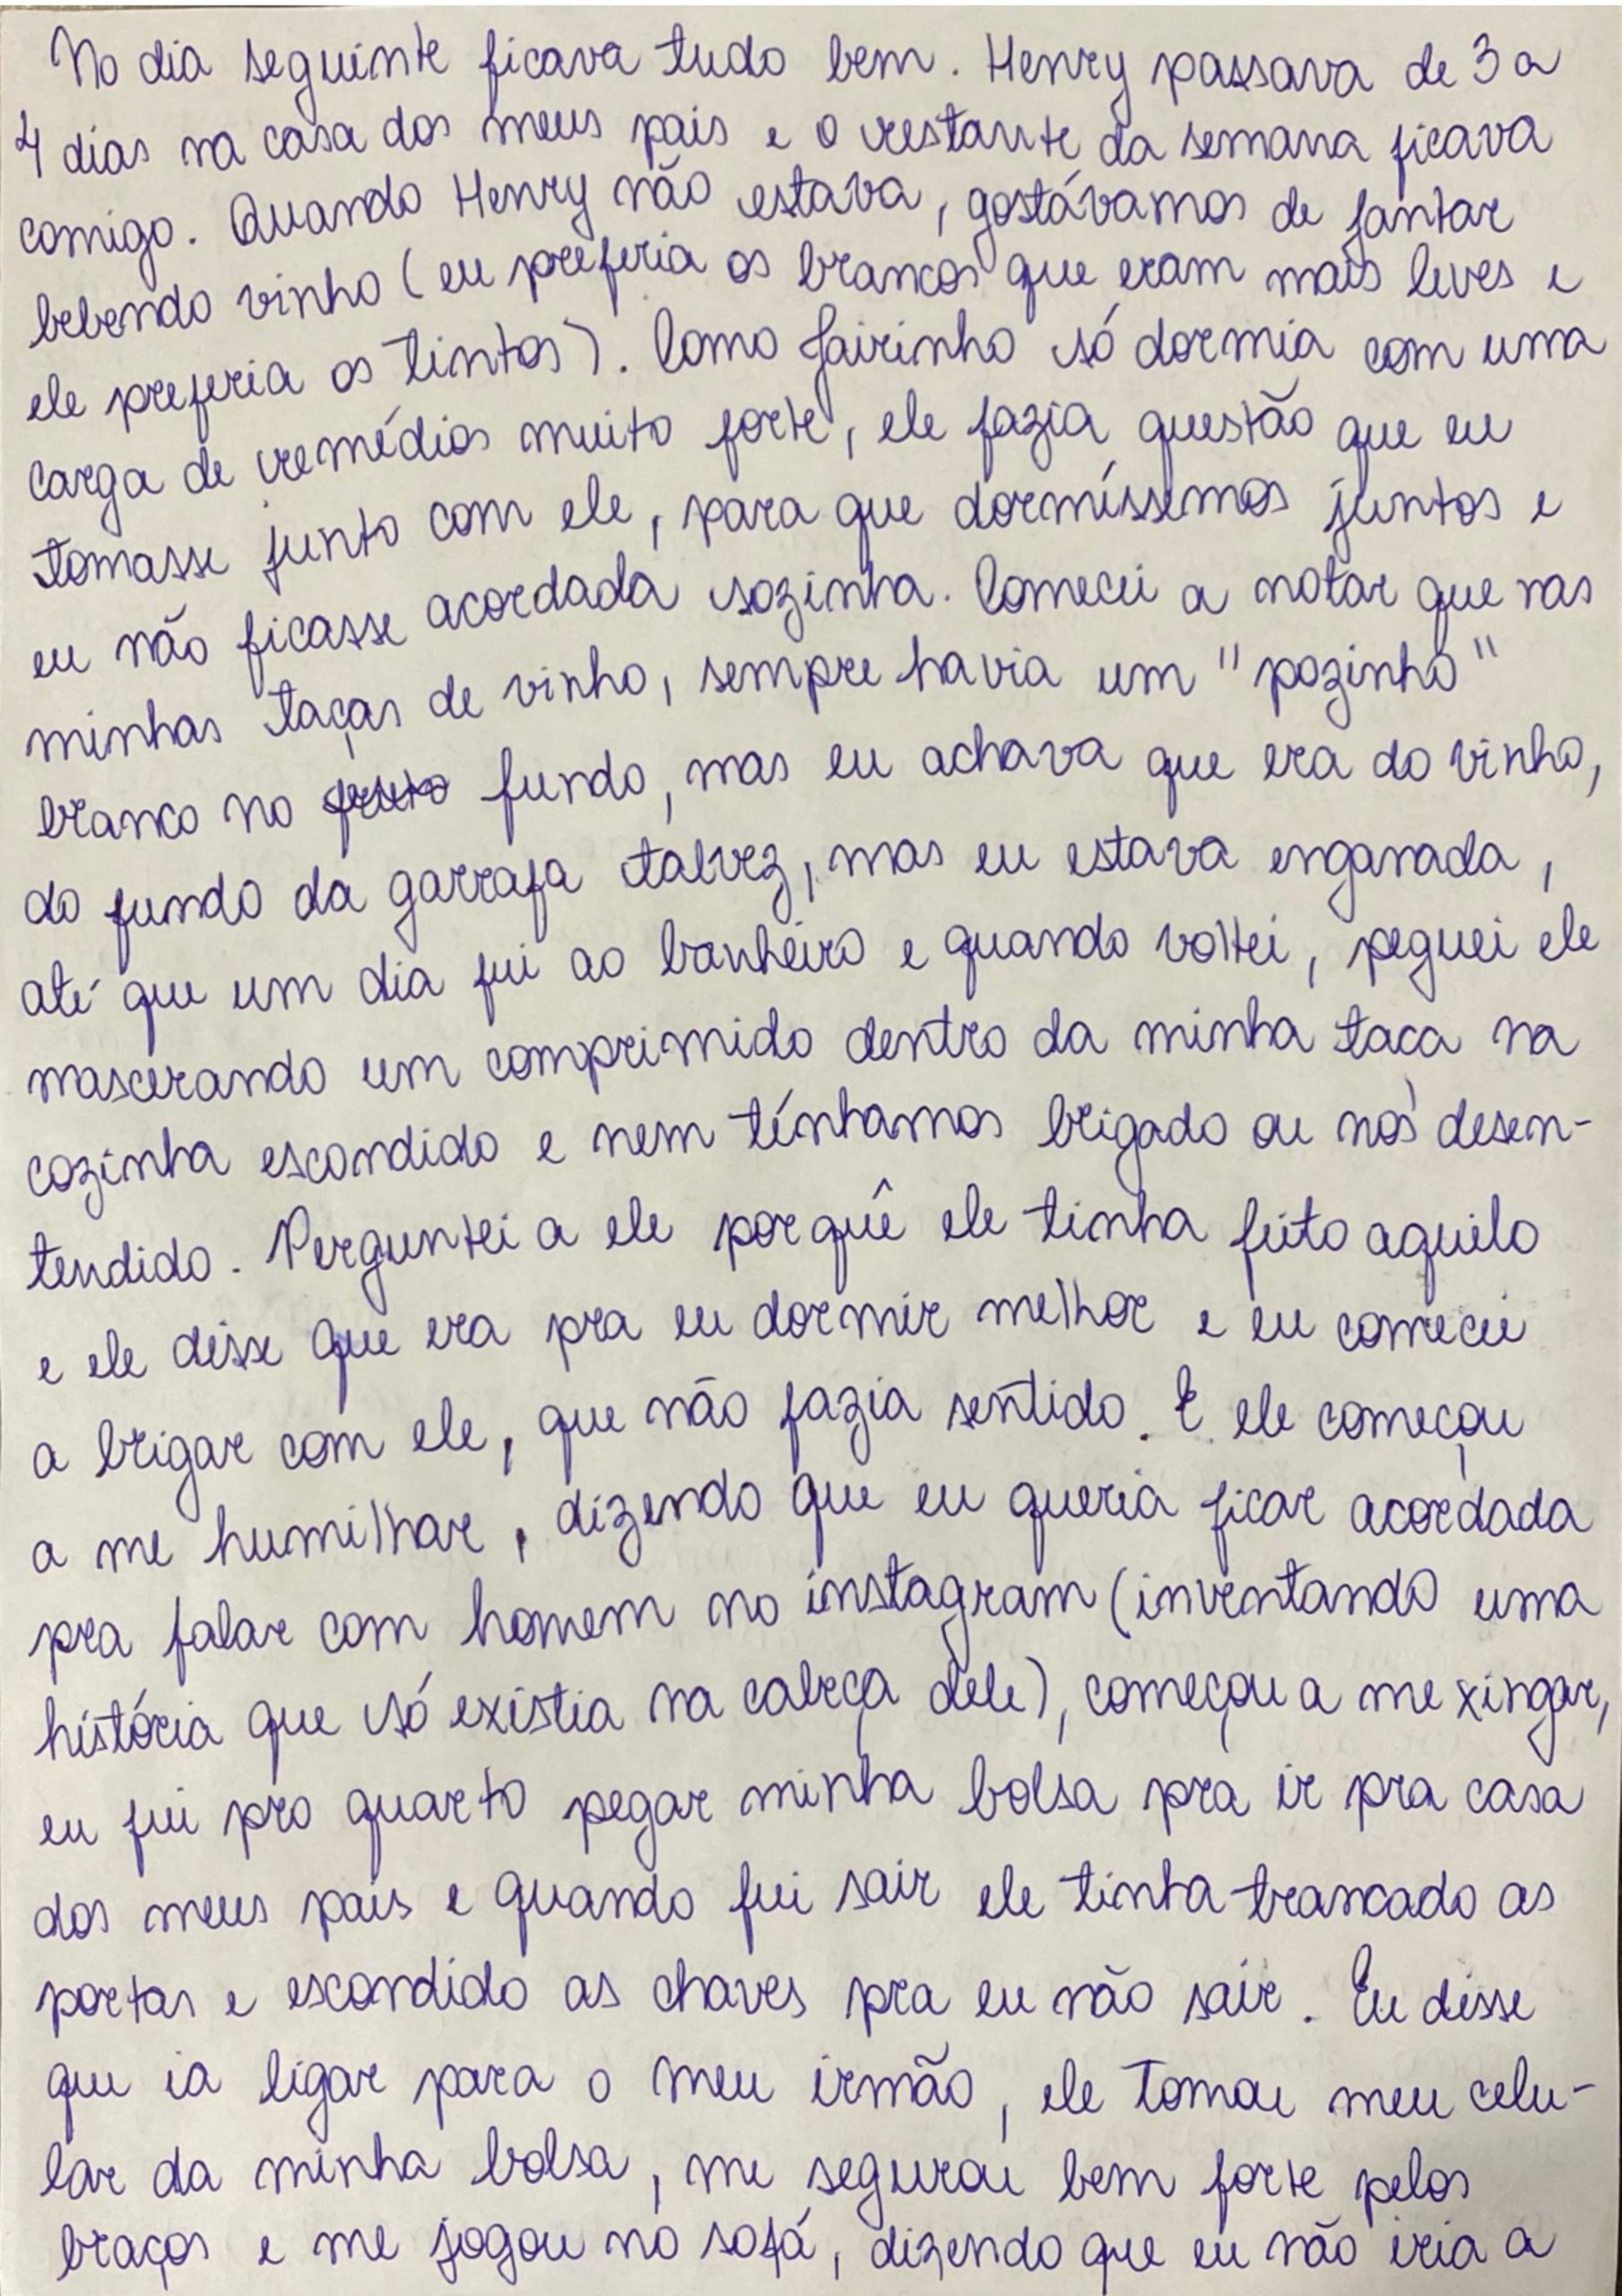 No dia seguinte ficava tudo bem. Henry passava de 3 a
4 dias na casa dos meus pais e o restante da semana ficava
comigo. Quando Henry não estava, gostávamos de jantar
bebendo vinho (eu preferia os brancos que eram mais leves e
ele preferia os tintos). Como Jairinho só dormia com uma
carga de remédios muito forte, ele fazia questão que eu
tomasse junto com ele, para que dormíssemos juntos e
eu não ficasse acordada sozinha. Comecei a notar que nas
minhas taças de vinho, sempre havia um "pozinho"
branco no fundo, mas eu achava que era do vinho,
do fundo da garrafa talvez, mas eu estava enganada,
até que um dia fui ao banheiro e quando voltei, peguei ele
mascerando um comprimido dentro da minha taca na
cozinha escondido e nem tínhamos brigado ou nos desen-
tendido. Perguntei a ele porquê ele tinha feito aquilo
e ele disse que era pra eu dormir melhor e eu comecei
a brigar com ele, que não fazia sentido. E ele começou
a me humilhar, dizendo que eu queria ficar acordada
pra falar com homem no instagram (inventando uma
história que só existia na cabeça dele), começou a me xingar,
eu fui pro quarto pegar minha bolsa pra ir pra casa
dos meus pais e quando fui sair ele tinha trancado as
portas e escondido as chaves pra eu não sair. Eu disse
que ia ligar para o meu irmão, ele tomou meu celu-
lar da minha bolsa, me segurou bem forte pelos
braços e me jogou no sofá, dizendo que eu não iria a